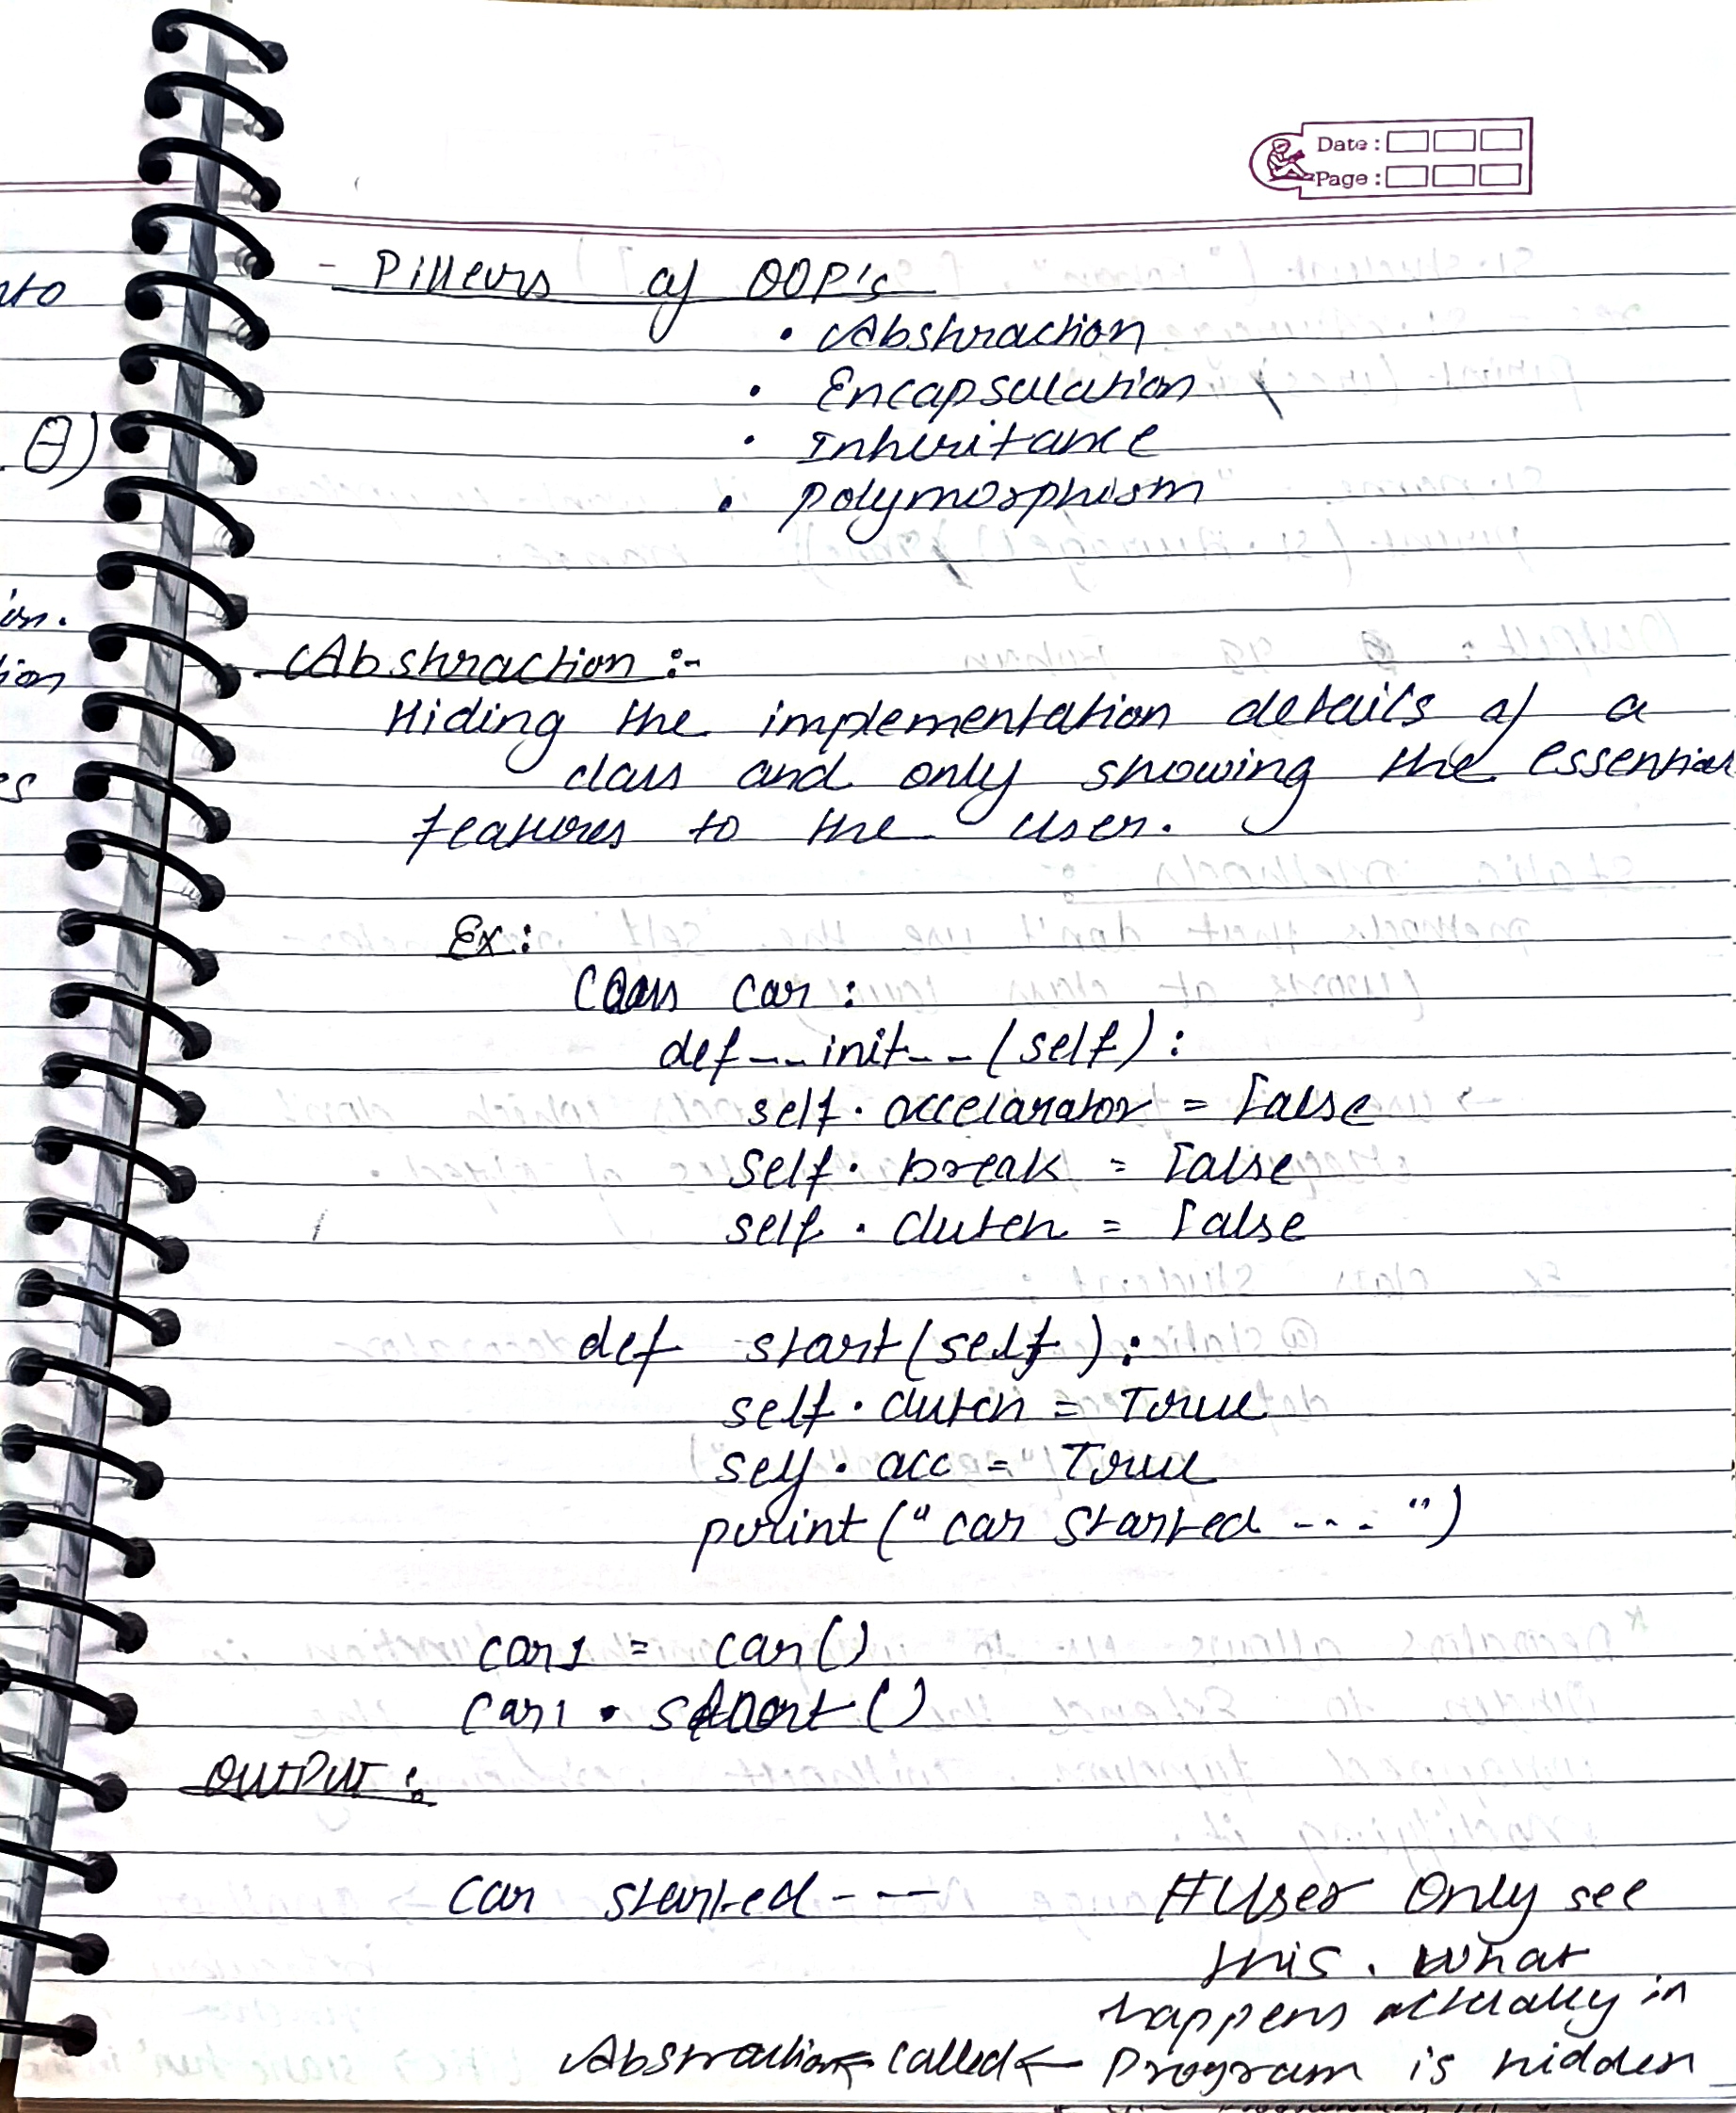 Date :
Page :
- Pillers of OOP's
• Abshraction
• Encapsulation
• Inheritance
• polymorphism
Abshraction :-
Hiding the implementation details of a
class and only showing the essential
features to the user.
Ex:
Class car :
def __init__ (self) :
self. accelarator = False
self. break = False
self. clutch = False
def start (self) :
self. clutch = True
self. acc = True
print ("car started ...")
car1 = car()
car1 . start ()
OUTPUT :
car started ---
#User Only see
this. What
happens actually in
Abstraction ← called ← Program is hidden